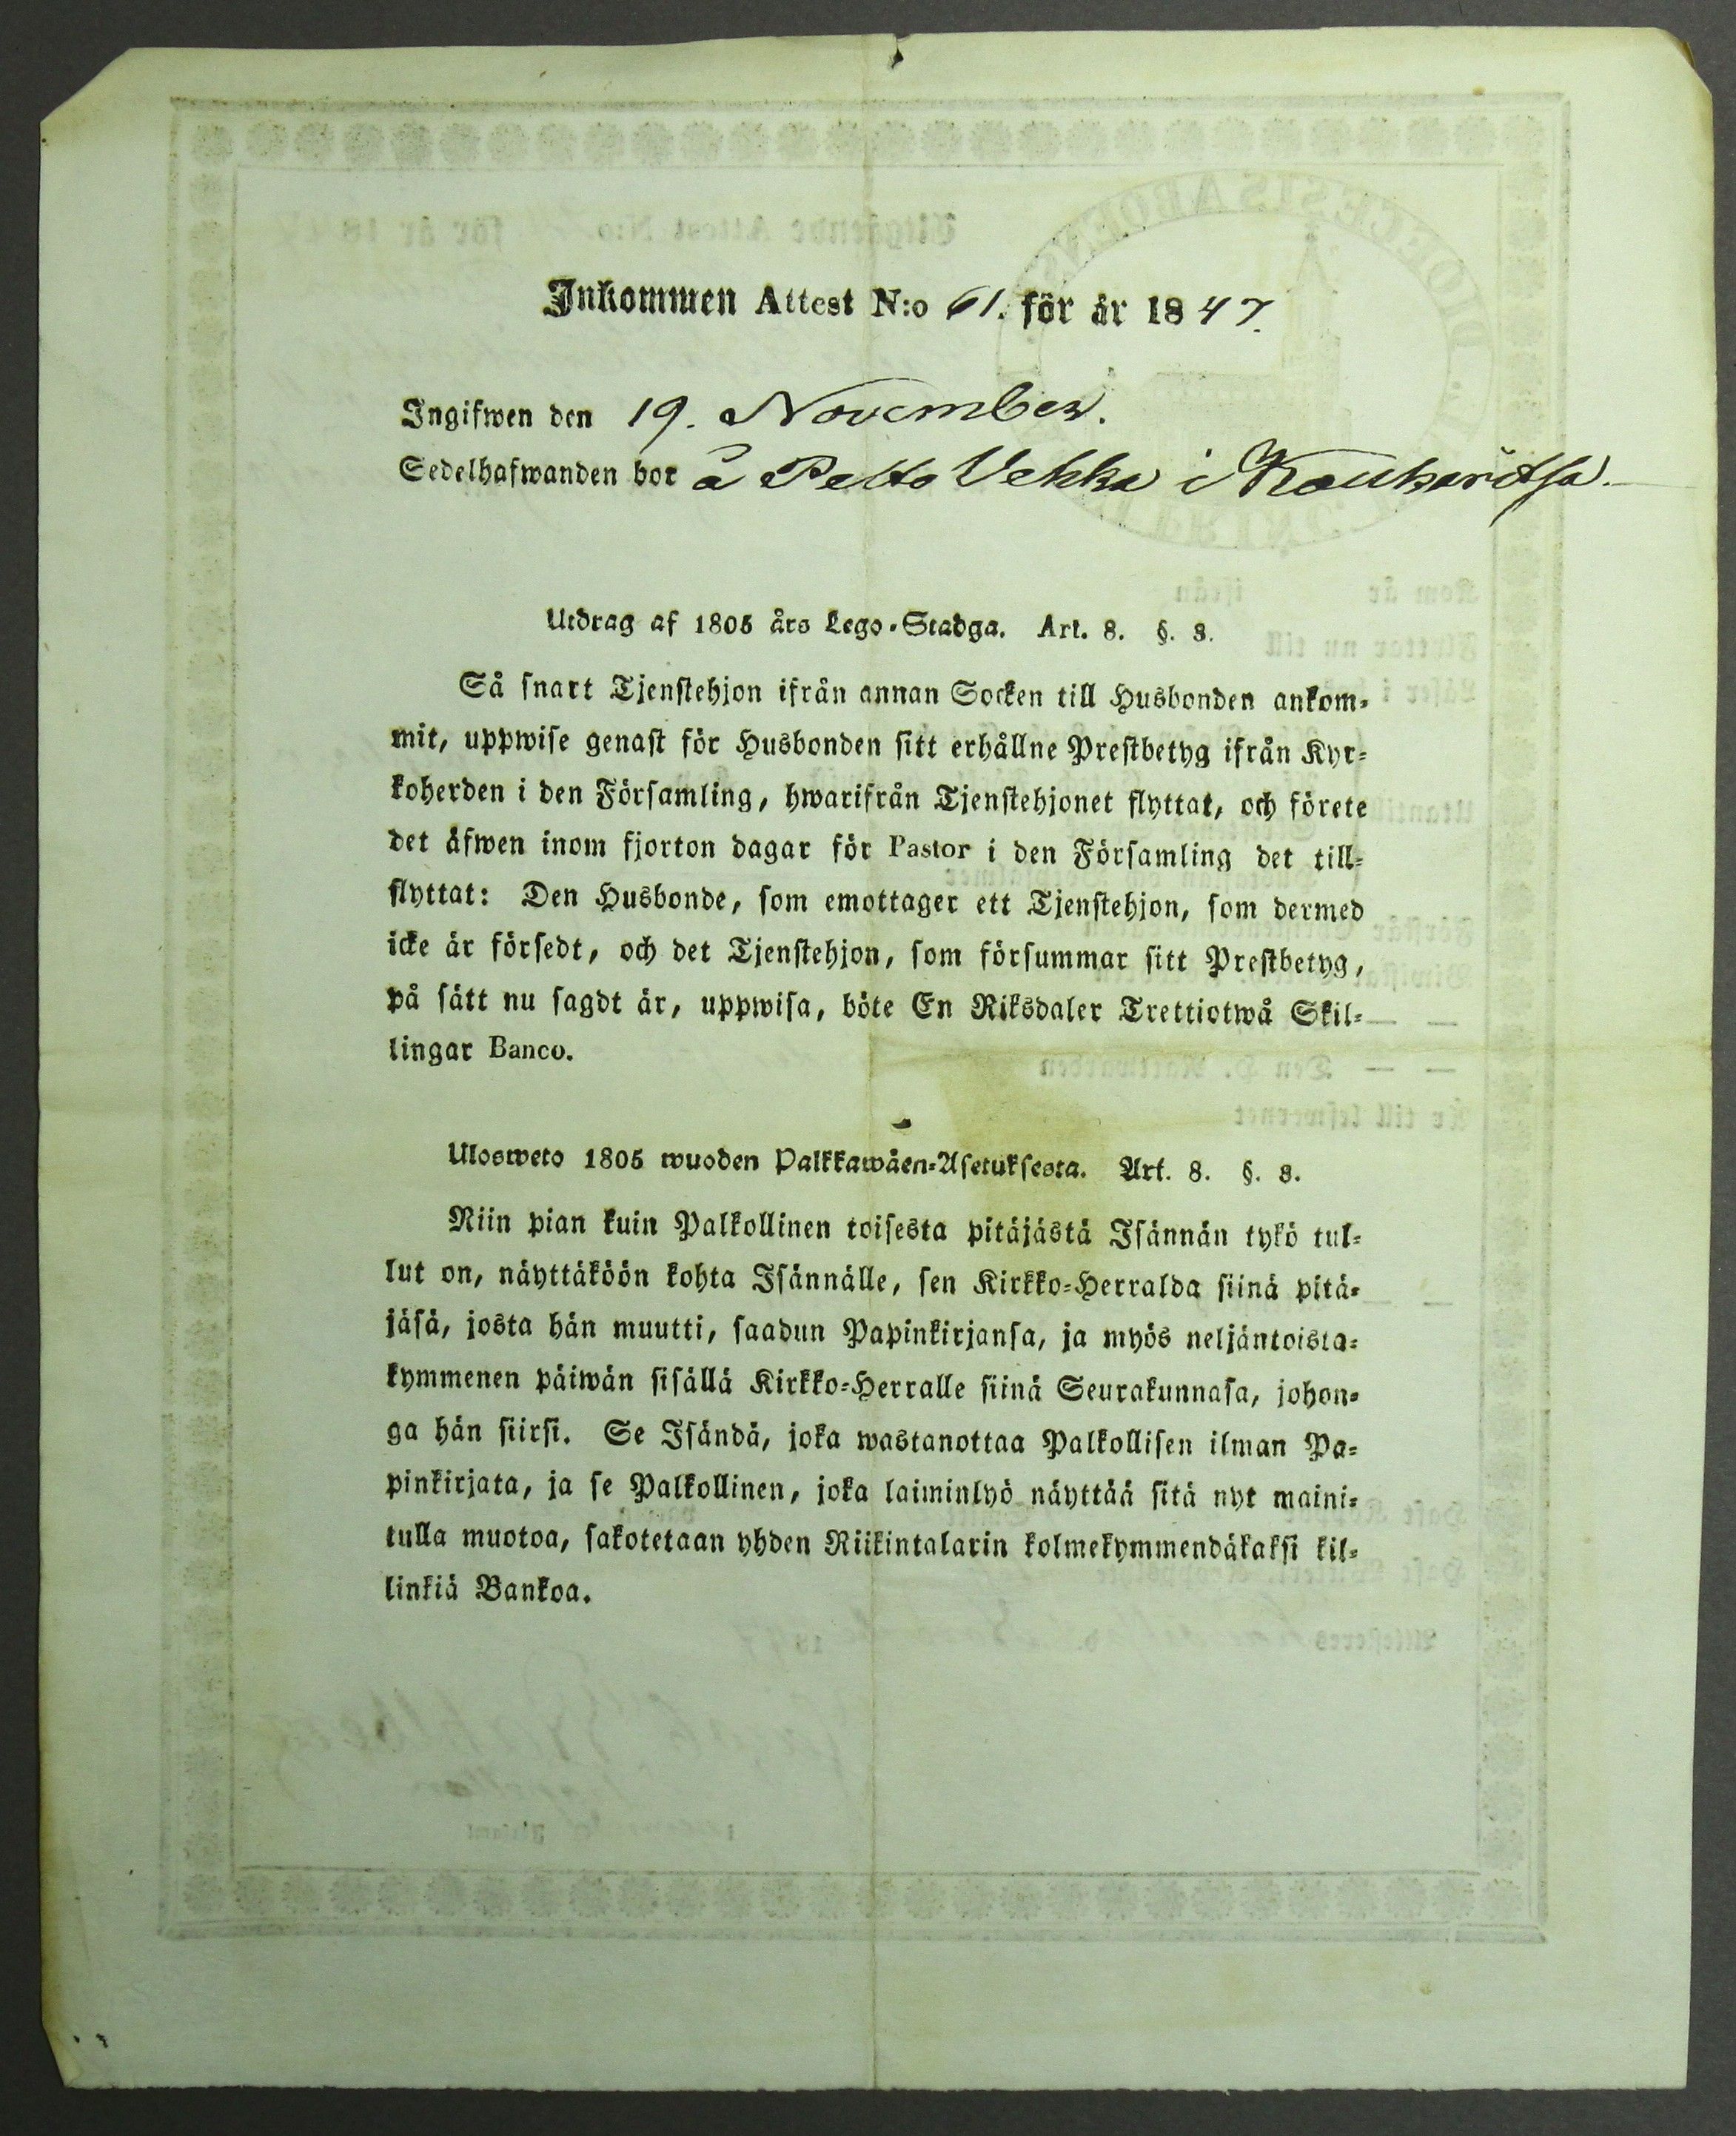 Inkommen Attest N:o 61. för år 1847.
Ingifwen den 19. November.
Sedelhafwanden bor å Pelto Vekka i Kauharitsa.
Utdrag af 1805 års Lego-Stadga. Art. 8. §. 3.
Så snart Tjenstehjon ifrån annan Socken till Husbonden ankom-
mit, uppwise genast för Husbonden sitt erhållne Prestbetyg ifrån Kyr-
koherden i den Församling, hwarifrån Tjenstehjonet flyttat, och förete
det äfwen inom fjorton dagar för Pastor i den Församling det till-
flyttat: Den Husbonde, som emottager ett Tjenstehjon, som dermed
icke är försedt, och det Tjenstehjon, som försummar sitt Prestbetyg,
på sätt nu sagdt är, uppwisa, böte En Riksdaler Trettiotwå Skil-
lingar Banco.
Ulosweto 1805 wuoden Palkkawäen-Asetuksesta. Art. 8. §. 3.
Niin pian kuin Palkollinen toisesta pitäjästä Isännän tykö tul-
lut on, näyttäköön kohta Isännälle, sen Kirkko-Herralda siinä pitä-
jäsä, josta hän muutti, saadun Papinkirjansa, ja myös neljäntoista-
kymmenen päiwän sisällä Kirkko-Herralle siinä Seurakunnasa, johon-
ga hän siirsi. Se Isändä, joka wastanottaa Palkollisen ilman Pa-
pinkirjata, ja se Palkollinen, joka laiminlyö näyttää sitä nyt maini-
tulla muotoa, sakotetaan yhden Riikintalarin kolmekymmendäkaksi kil-
linkiä Bankoa.